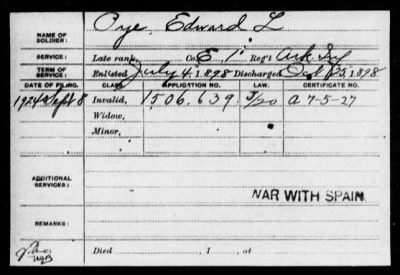 NAME OF SOLDIER: Pye, Edward L
SERVICE: Late rank, Co. E, 1" Reg't Ark Inf
TERM OF SERVICE: Enlisted July 4, 1898 Discharged Oct. 25, 1898
DATE OF FILING. CLASS. APPLICATION NO. LAW. CERTIFICATE NO.
1924 Sept 8 Invalid, 1506.639 5/20 A 7-5-27
Widow,
Minor,
ADDITIONAL SERVICES:
WAR WITH SPAIN
REMARKS:
Died , 1 , at